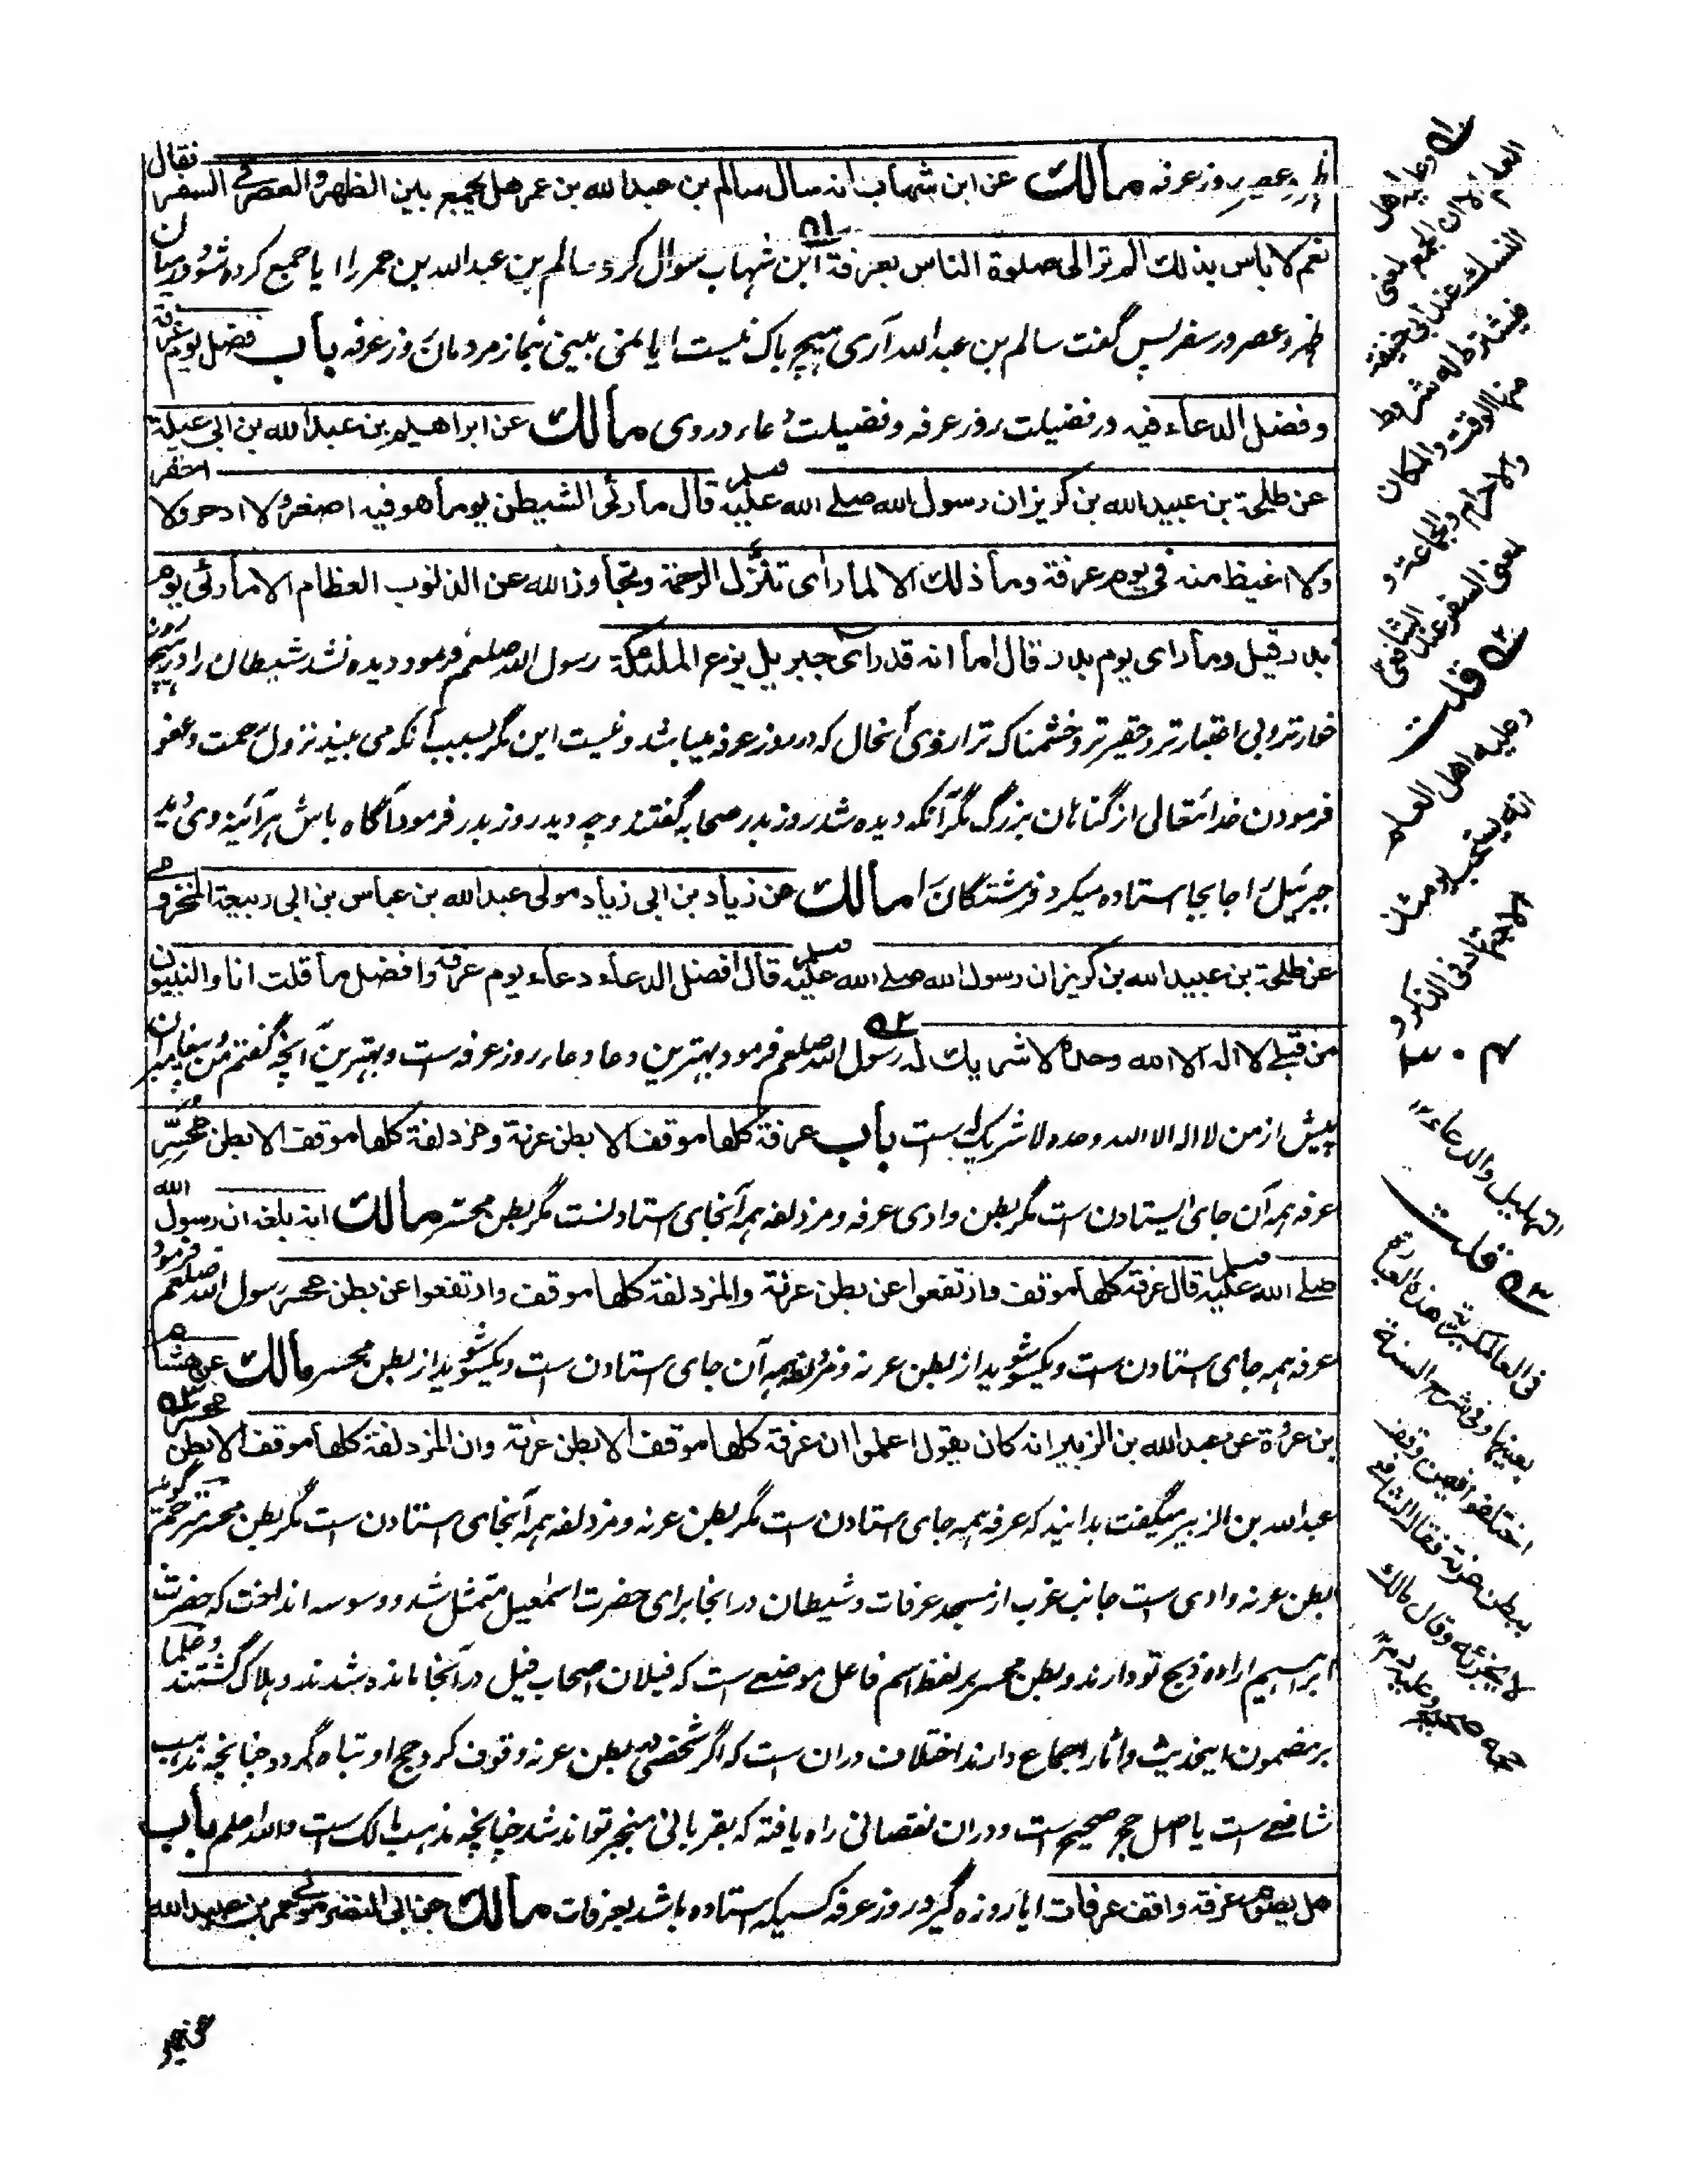 ظهر و عصر بروز عرفه مالك عن ابن شهاب انه سال سالم بن عبدالله بن عمر هل يجمع بين الظهر والعصر في السفر فقال
نعم لا باس بذلك الم تر الى صلوة الناس بعرفة ابن شهاب سوال كرد سالم بن عبدالله بن عمر را ايا جمع كرده شود درميان
ظهر و عصر در سفر پس گفت سالم بن عبدالله آرى هيچ باك نيست ايا نمى بينى نماز مردمان روز عرفه باب فضل يوم عرفة
و فضل الدعاء فيه در فضيلت روز عرفه و فضيلت دعاء در وى مالك عن ابراهيم بن عبدالله بن ابى عبلة
عن طلحة بن عبيدالله بن كريز ان رسول الله صلے الله عليه وسلم قال ما رئى الشيطن يوما هو فيه اصغر ولا ادحر ولا احقر
ولا اغيظ منه فى يوم عرفة وما ذلك الا لما راى تنزل الرحمة وتجاوز الله عن الذنوب العظام الا ما رئى يوم
بدر قيل وما راى يوم بدر قال اما انه قد راى جبريل يزع الملئكة رسول الله صلعم فرمود ديده نشد شيطان را در هيچ روز
خوارتر و بى اعتبارتر و حقيرتر و خشمناك تر از روى آنحال كه در روز عرفه ميباشد و نيست اين مگر بسبب آنكه مى بيند نزول رحمت و عفو
فرمودن خدائتعالى از گناهان بزرگ مگر آنكه ديده شد روز بدر صحابه گفتند و چه ديد روز بدر فرمود آگاه باش هرآئينه وى ديد
جبرئيل را جابجا استاده ميكرد فرشتگان را مالك عن زياد بن ابى زياد مولى عبدالله بن عياش بن ابى ربيعة المخزومى
عن طلحة بن عبيدالله بن كريز ان رسول الله صلے الله عليه وسلم قال افضل الدعاء دعاء يوم عرفة وافضل ما قلت انا والنبيون
من قبلے لا اله الا الله وحده لا شريك له رسول الله صلعم فرمود بهترين دعا دعاء روز عرفه ست و بهترين آنچه گفتم من و پيغامبران
پيش از من لا اله الا الله وحده لا شريك له ست باب عرفة كلها موقف الا بطن عرنة ومزدلفة كلها موقف الا بطن محسر
عرفه همه آن جاى ايستادن ست مگر بطن وادى عرفه و مزدلفه همه آنجاى استادنست مگر بطن محسر مالك انه بلغه ان رسول الله
صلے الله عليه وسلم قال عرفة كلها موقف وارتفعوا عن بطن عرنة والمزدلفة كلها موقف وارتفعوا عن بطن محسر رسول الله صلعم فرمود
عرفه همه جاى استادن ست و يكسو شويد از بطن عرنه و مزدلفه همه آن جاى استادن ست و يكسو شويد از بطن محسر مالك عن هشام
بن عروة عن عبدالله بن الزبير انه كان يقول اعلموا ان عرفة كلها موقف الا بطن عرنة وان المزدلفة كلها موقف الا بطن محسر
عبدالله بن الزبير ميگفت بدانيد كه عرفه همه جاى استادن ست مگر بطن عرنه و مزدلفه همه آنجاى استادن ست مگر بطن محسر مترجم گويد
بطن عرنه وادى ست جانب غرب از مسجد عرفات و شيطان در انجا براى حضرت اسمعيل متمثل شد و وسوسه انداخت كه حضرت
ابراهيم اراده ذبح تو دارند و بطن محسر بر لفظ اسم فاعل موضعے ست كه فيلان اصحاب فيل در آنجا مانده شدند و هلاك گشتند و علما
بر مضمون اينحديث و اثار اجماع دارند اختلاف دران ست كه اگر شخصى ببطن عرنه وقوف كرد حج او تباه گردد چنانچه مذهب
شافعے ست يا اصل حج صحيح ست و دران نقصانى راه يافته كه بقربانى منجبر تواند شد چنانچه مذهب مالك ست والله اعلم باب
هل يصوم عرفة واقف عرفات ايا روزه گيرد روز عرفه كسيكه استاده باشد بعرفات مالك عن ابى النضر مولى عمر بن عبيدالله
۵۱ وعليه اهل
العلم لان الجمع لمعنى
النسك عند ابى حنيفة
فيشترط له شروط
منها الوقت والمكان
والاحرام والجماعة و
لمعنى السفر عند الشافعى
۵۲ قلت
وعليه اهل العلم
انه يستحب يومئذ
الاجتهاد فى الذكر و
التهليل والدعاء ۱۲
۵۳ قلت
فى العالمكيرية هذه العبارة
بعينها وفى شرح السنة
اختلفوا فيمن وقف
ببطن عرنة فقال الشافعى
لا يجزئه وقال مالك
حجه صحيح وعليه دم ۱۲